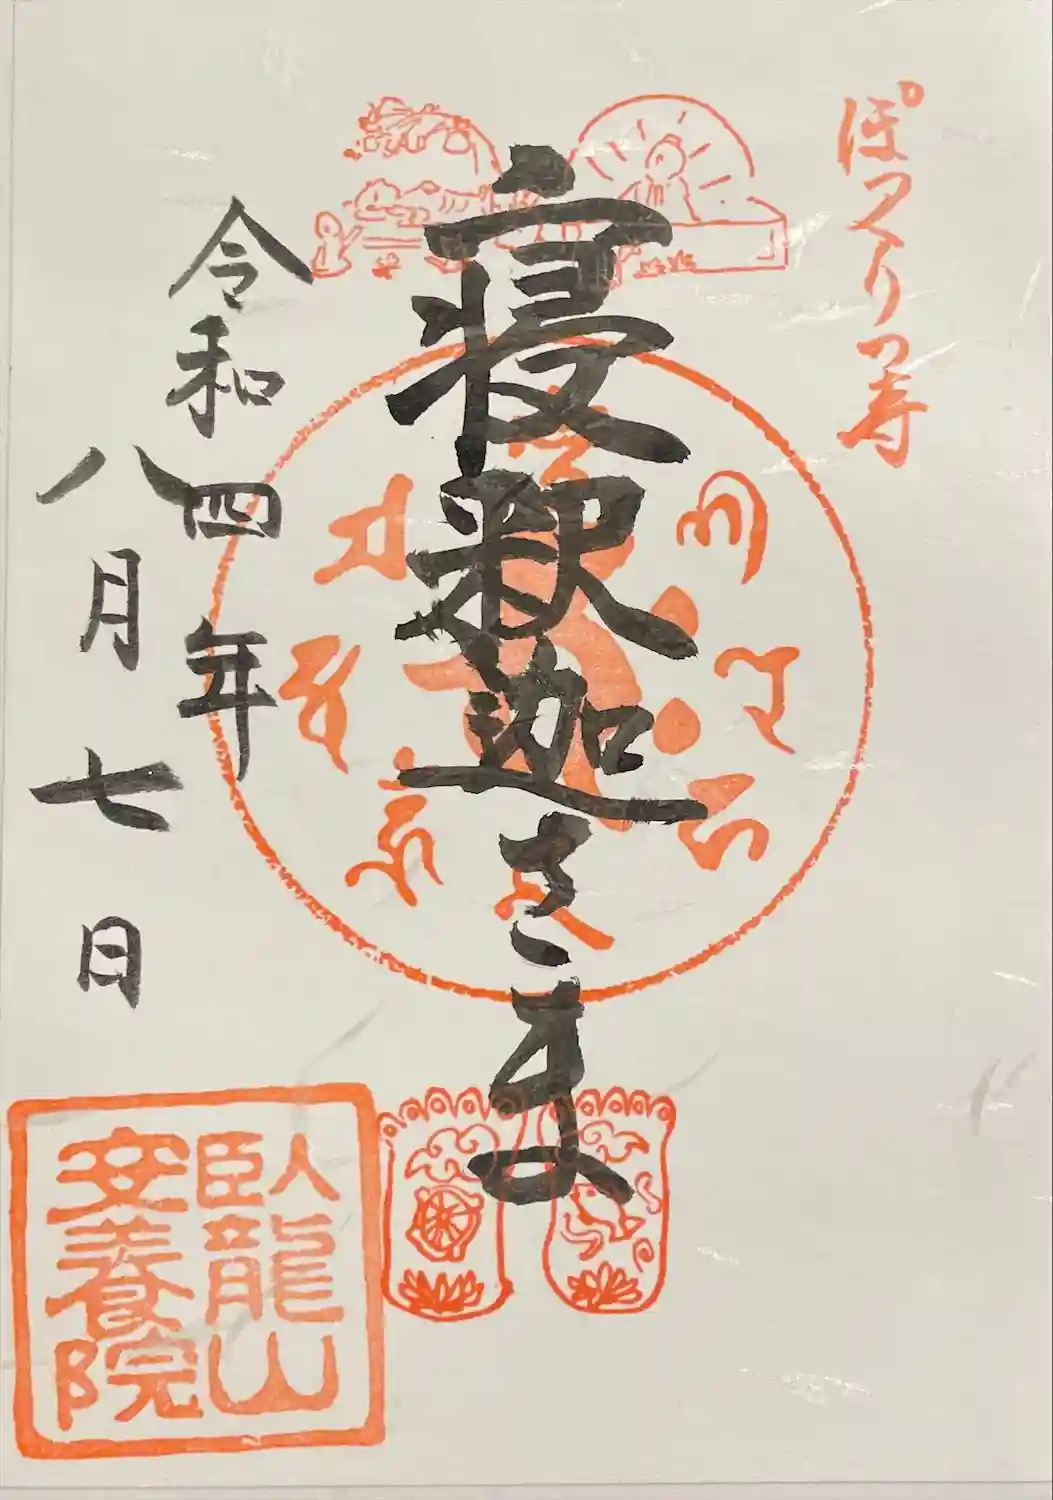 ぽっくり寿
寝釈迦さま
令和四年
八月七日
臥龍山
安養院